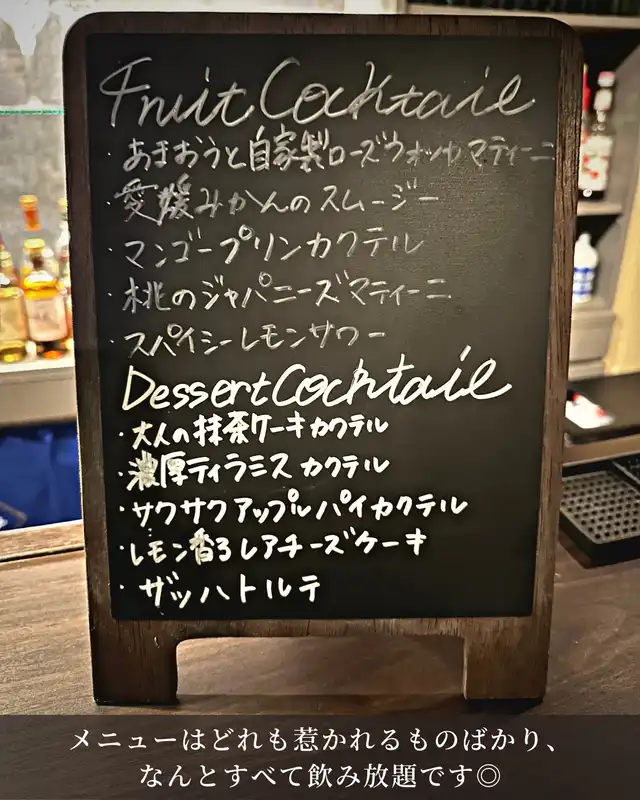 Fruit Cocktail
・あまおうと自家製ローズウォッカマティーニ
・愛媛みかんのスムージー
・マンゴープリンカクテル
・桃のジャパニーズマティーニ
・スパイシーレモンサワー
Dessert Cocktail
・大人の抹茶ケーキカクテル
・濃厚ティラミスカクテル
・サクサクアップルパイカクテル
・レモン香るレアチーズケーキ
・ザッハトルテ
メニューはどれも惹かれるものばかり、
なんとすべて飲み放題です◎